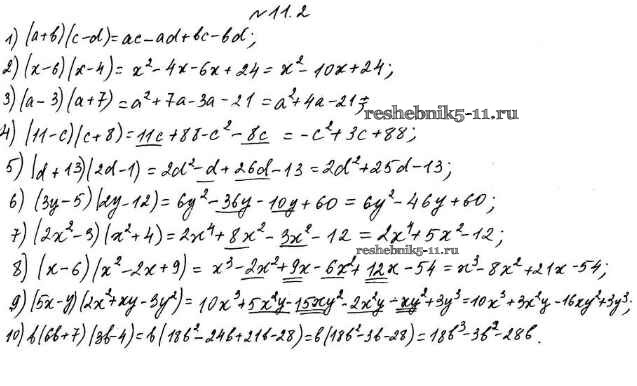 № 11.2
1) (a+b)(c-d)=ac-ad+bc-bd;
2) (x-6)(x-4)=x²-4x-6x+24=x²-10x+24;
3) (a-3)(a+7)=a²+7a-3a-21=a²+4a-21;
reshebnik5-11.ru
4) (11-c)(c+8)=11c+88-c²-8c=-c²+3c+88;
5) (d+13)(2d-1)=2d²-d+26d-13=2d²+25d-13;
6) (3y-5)(2y-12)=6y²-36y-10y+60=6y²-46y+60;
7) (2x²-3)(x²+4)=2x⁴+8x²-3x²-12=2x⁴+5x²-12;
reshebnik5-11.ru
8) (x-6)(x²-2x+9)=x³-2x²+9x-6x²+12x-54=x³-8x²+21x-54;
9) (5x-y)(2x²+xy-3y²)=10x³+5x²y-15xy²-2x²y-xy²+3y³=10x³+3x²y-16xy²+3y³;
10) b(6b+7)(3b-4)=b(18b²-24b+21b-28)=b(18b²-3b-28)=18b³-3b²-28b.